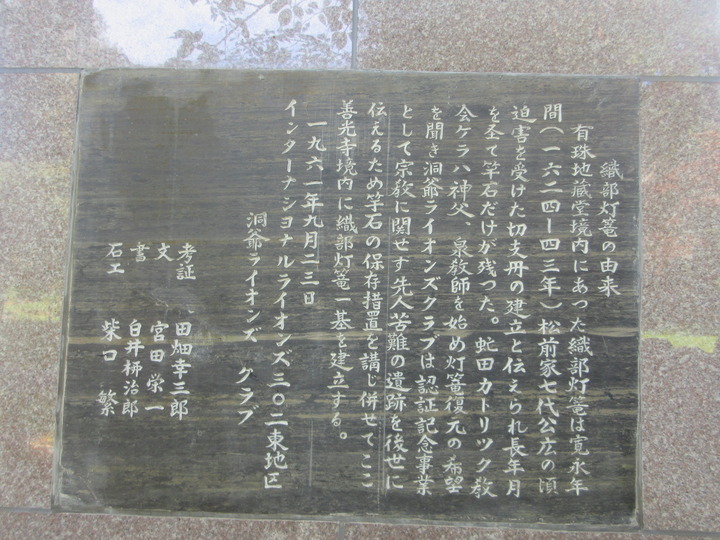 織部灯篭の由来
有珠地蔵堂境内にあった織部灯篭は寛永年
間(一六二四ー四三年)松前家七代公広の頃
迫害を受けた切支丹の建立と伝えられ長年月
を圣て竿石だけが残つた。虻田カトリック教
会ケラハ神父、泉教師を始め灯篭復元の希望
を聞き洞爺ライオンズクラブは認証記念事業
として宗教に関せす先人苦難の遺跡を後世に
伝えるため竿石の保存措置を講じ併せてここ
善光寺境内に織部灯篭一基を建立する。
一九六一年九月二三日
インターナシヨナルライオンズ三〇二東地区
洞爺ライオンズ クラブ
考証 田畑幸三郎
文 宮田栄一
書 白井柳治郎
石工 柴口繁